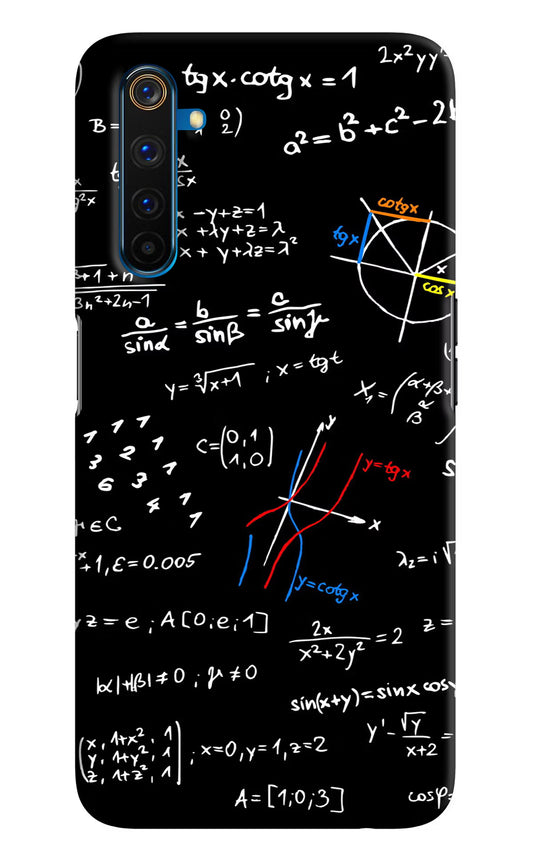 2x²yy'
tgx·cotgx=1
B=
0
2)
a²=b²+c²-2b
x
x
cotgx
g²x
-y+z=1
x +λy+z=λ
x + y+λz=λ²
tgx
x
cosx
3+1+n
3n²+2n-1
a/sinα = b/sinβ = c/sinγ
y=∛x+1 ; x=tgt
X₁=(α+β+
β
1 1 1
3 2 1
6 3 1
4 1
C=(0,1
1,0)
y
y=tgx
x
∓εC
+1,ε=0.005
λ₂=i√
y=cotgx
yz=e ; A[0;e;1]
2x/x²+2y²=2
z=
|α|+|β|≠0 ; γ≠0
sin(x+y)=sinx cosy
(x, 1+x², 1
y, 1+y², 1
z, 1+z², 1) ; x=0, y=1, z=2
y'-√y/x+2=
A=[1;0;3]
cosφ=